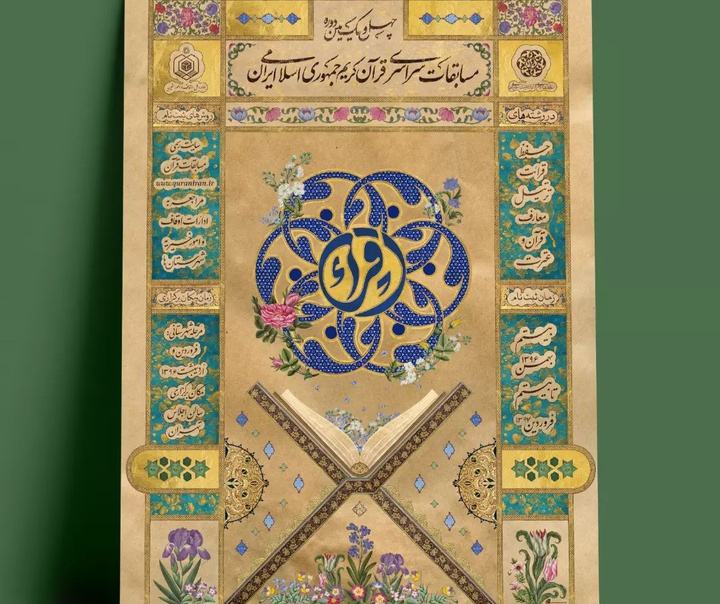 چهل و یکمین دوره
مسابقات سراسری قرآن کریم جمهوری اسلامی ایران
در رشته‌های
حفظ
قرائت
ترتیل
معارف
قرآن و
عترت
زمان ثبت نام
بیستم
بهمن
۱۳۹۶
تا بیستم
فروردین ۱۳۹۷
روش‌های ثبت نام
مسابقات قرآن
www.quraniran.ir
مراجعه به
ادارات اوقاف
و امور خیریه
شهرستان‌ها
زمان و مکان برگزاری
مرحله شهرستانی:
فروردین و
اردیبهشت ۱۳۹۷
مکان برگزاری
سالن اجلاس
تهران
اقراء